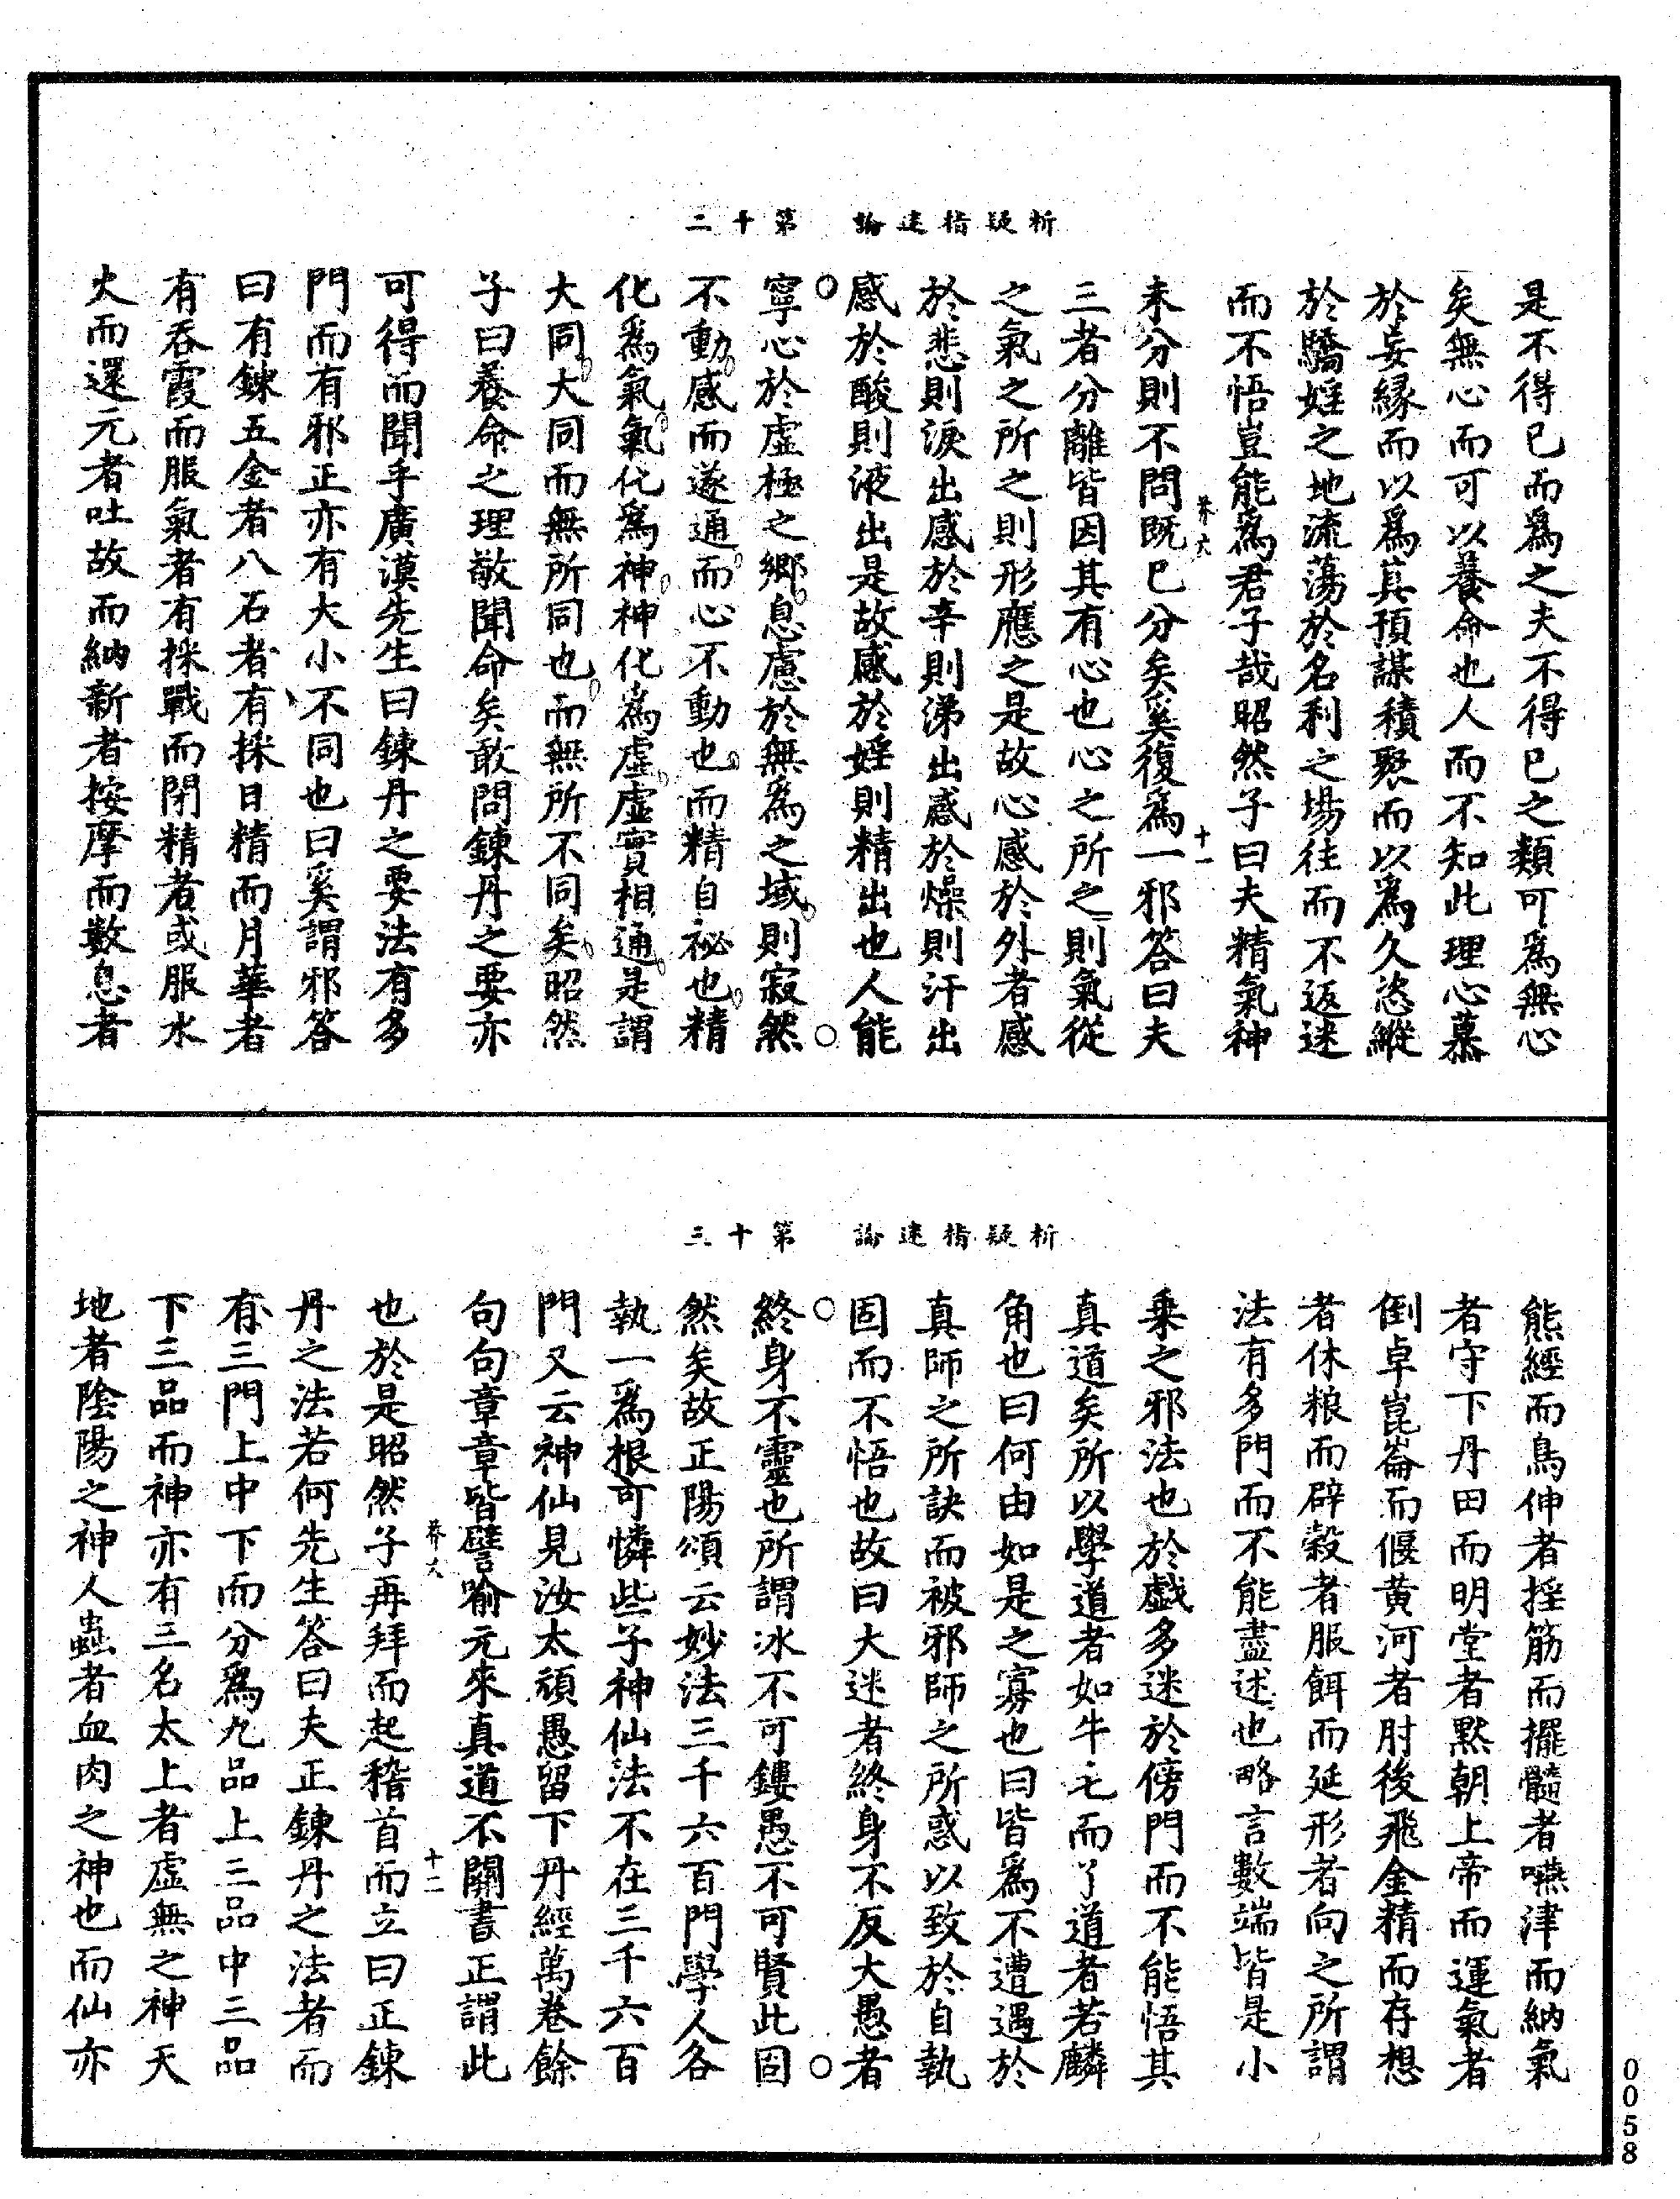 析疑指迷論　第十二
是不得已而爲之夫不得已之類可爲無心
矣無心而可以養命也人而不知此理心慕
於妄緣而以爲真預謀積聚而以爲久恣縱
於驕婬之地流蕩於名利之場往而不返迷
而不悟豈能爲君子哉昭然子曰夫精氣神
莽六　十一
未分則不問既已分矣奚復爲一邪答曰夫
三者分離皆因其有心也心之所之則氣從
之氣之所之則形應之是故心感於外者感
於悲則淚出感於辛則涕出感於燥則汗出
感於酸則液出是故感於婬則精出也人能
寧心於虛極之鄉息慮於無爲之域則寂然
不動感而遂通而心不動也而精自祕也精
化爲氣氣化爲神神化爲虛虛實相通是謂
大同大同而無所同也而無所不同矣昭然
子曰養命之理敬聞命矣敢問鍊丹之要亦
可得而聞乎廣漠先生曰鍊丹之要法有多
門而有邪正亦有大小不同也曰奚謂邪答
曰有鍊五金者八石者有採日精而月華者
有吞霞而服氣者有採戰而閉精者或服水
火而還元者吐故而納新者按摩而數息者
析疑指迷論　第十三
熊經而鳥伸者揑筋而擺髓者嚥津而納氣
者守下丹田而明堂者默朝上帝而運氣者
倒卓崑崙而偃黄河者肘後飛金精而存想
者休粮而辟穀者服餌而延形者向之所謂
法有多門而不能盡述也略言數端皆是小
乗之邪法也於戱多迷於傍門而不能悟其
真道矣所以學道者如牛毛而了道者若麟
角也曰何由如是之寡也曰皆爲不遭遇於
真師之所訣而被邪師之所惑以致於自執
固而不悟也故曰大迷者終身不反大愚者
終身不靈也所謂冰不可鏤愚不可賢此固
然矣故正陽頌云妙法三千六百門學人各
執一爲根可憐些子神仙法不在三千六百
門又云神仙見汝太頑愚留下丹經萬卷餘
句句章章皆譬喻元來真道不關書正謂此
莽六　十二
也於是昭然子再拜而起稽首而立曰正鍊
丹之法若何先生答曰夫正鍊丹之法者而
有三門上中下而分爲九品上三品中三品
下三品而神亦有三名太上者虛無之神天
地者陰陽之神人蟲者血肉之神也而仙亦
0058